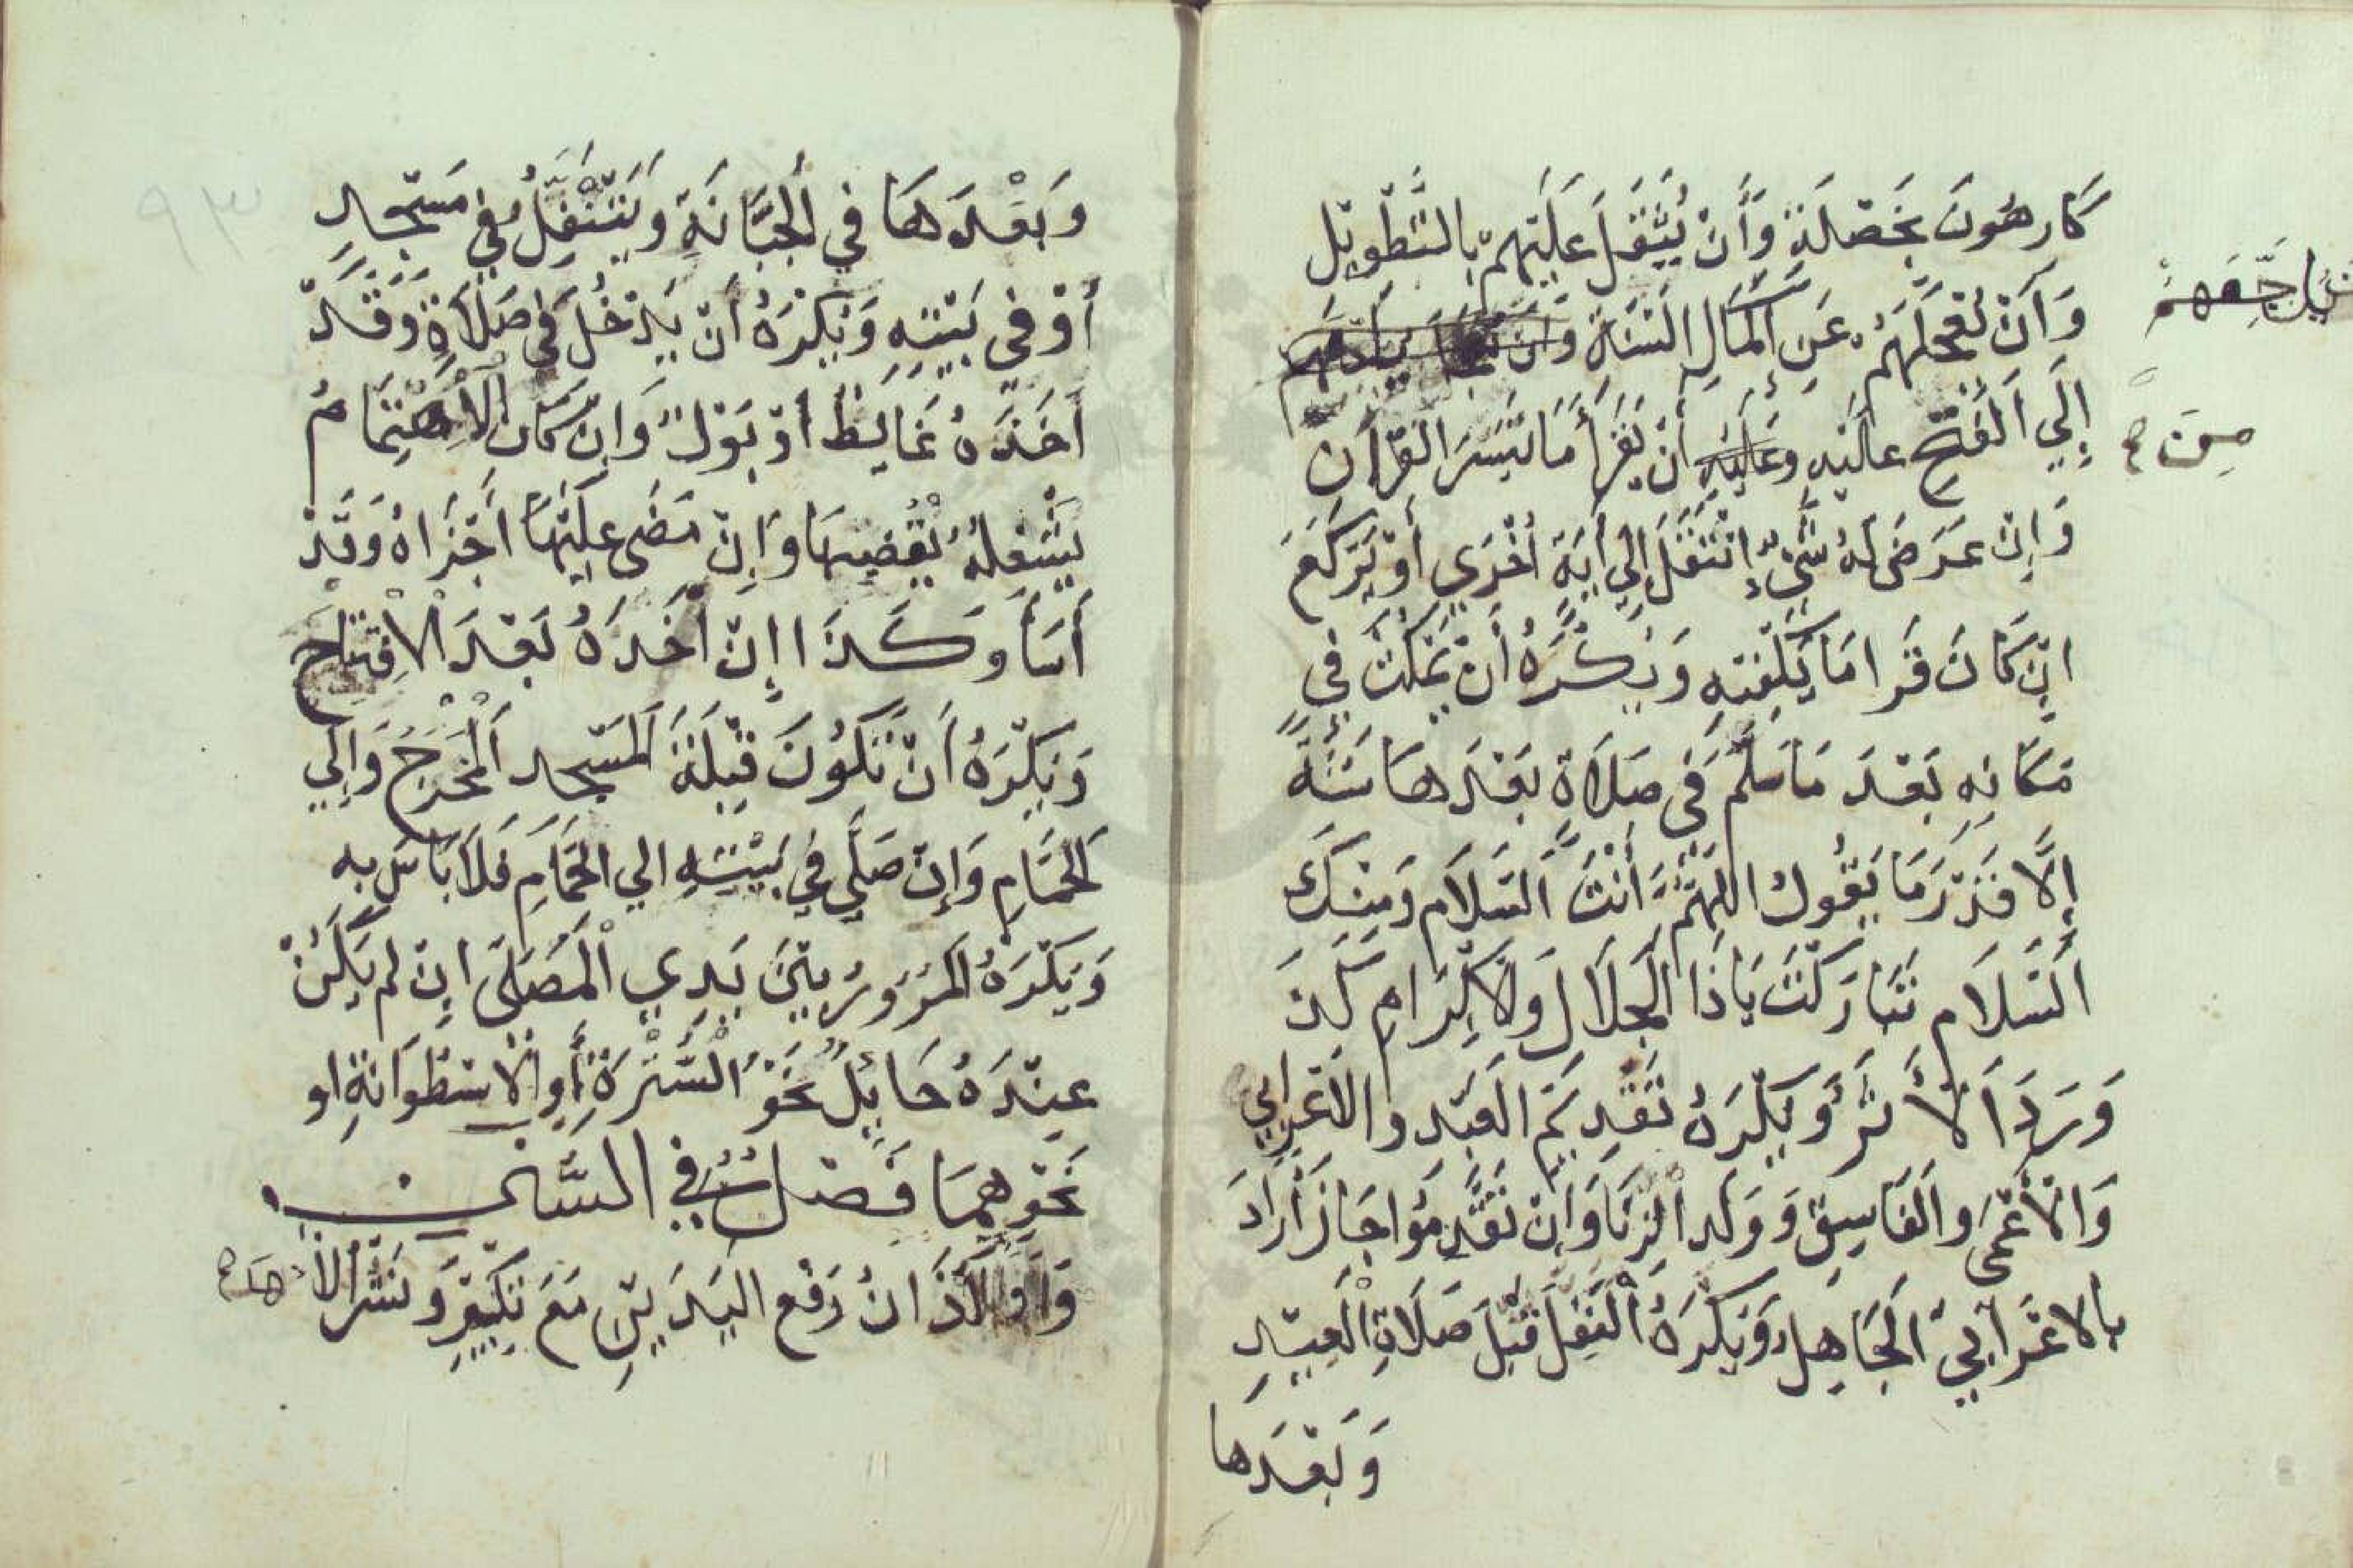 كَارِهُونَ بِخَصْلَةٍ وَأَنْ يُثَقِّلَ عَلَيْهِمْ بِالتَّطْوِيْلِ
وَأَنْ يُعَجِّلَهُمْ عَنِ اِكْمَالِ السُّنَةِ وَانْ يُلْجِئَهُمْ
إِلَي اَلْفَتْحِ عَلَيْهِ وَعَلَيْهِ أَنْ يَقْرَأَ مَا تَيَسَّرَ مِنَ الْقُرْأَنِ
وَإِنْ عَرَضَ لَهُ شَيْءٌ اِنْتَقَلَ إِلَي أَيَةٍ أُخْرَي أَوْ يَرْكَعَ
اِنْ كَانَ قَرَا مَا يَكْفِيْهِ وَيُكْرَهُ أَنْ يَمْكُثَ فِي
مَكَانِهِ بَعْدَ مَا سَلَّمَ فِي صَلَاةٍ بَعْدَهَا سُنَّةٌ
إِلَّا قَدْرَ مَا يَقُولُ اللهُمَّ أَنْتَ السَّلَام وَمِنْكَ
السَّلَام تَبَارَكْتَ يَاذَا الْجَلَالِ وَالاِكْرَامِ كَذَ
وَرَدَ اَلْأَثَرُ وَيُكْرَهُ تَقْدِيْمُ الْعَبْدِ وَالْاَعْرَابِي
وَالْأَعْمَى وَالْفَاسِقِ وَوَلَدِ الزِّنَا وَإِنْ تَقَدَّمُوا جَازَ أَرَادَ
بِالاَعْرَابِيِّ الْجَاهِلَ وَيُكْرَهُ اَلنَّفْلُ قَبْلَ صَلَاةِ الْعِيْدِ
وَبَعْدَهَا
٩٣
وَبَعْدَهَا فِي الْجَبَّانَةِ وَيَتَنَفَّلُ فِي مَسْجِدِ
أَوْ فِي بَيْتِهِ وَيُكْرَهُ أَنْ يَدْخُلَ فِي صَلَاةٍ وَقَدْ
أَخَذَهُ غَايِطٌ أَوْ بَوْلٌ وَاِنْ كَانَ الْاِهْتِمَامُ
يَشْغَلُهُ يَقْضِيْهَا وَاِنْ مَضَى عَلَيْهَا اَجْزَاهُ وَقَدْ
أَسَأَ وَكَذَا إِنْ أَخَذَهُ بَعْدَ الْاِفْتِتَاحِ
وَيُكْرَهُ أَنْ تَكُونَ قِبْلَةُ الْمَسْجِدِ الْمَخْرَجَ وَاِلَي
اَلْحَمَّامِ وَإِنْ صَلَّي فِي بَيْتِهِ الي الْحَمَّامِ فَلَا بَاسَ به
وَيُكْرَهُ الْمُرُورُ بَيْنَ يَدَيِ الْمُصَلِّى اِنْ لم يَكُنْ
عِنْدَهُ حَايِلٌ نَحْوُ السُّتْرَةِ أَوِ الْأُسْطُوَانَةِ او
نَحْوِهِمَا فَصْلٌ فِي السُّنَنِ
وَاَوَّلُ الْأَذَانُ رَفْعُ الْيَدَيْنِ مَعَ تَكْبِيْرِ وَنَشْرُ الْأَ